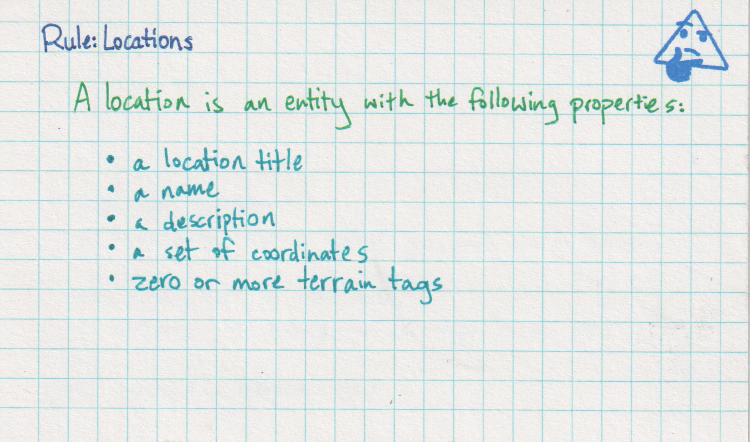 Rule: Locations
A location is an entity with the following properties:
• a location title
• a name
• a description
• a set of coordinates
• zero or more terrain tags